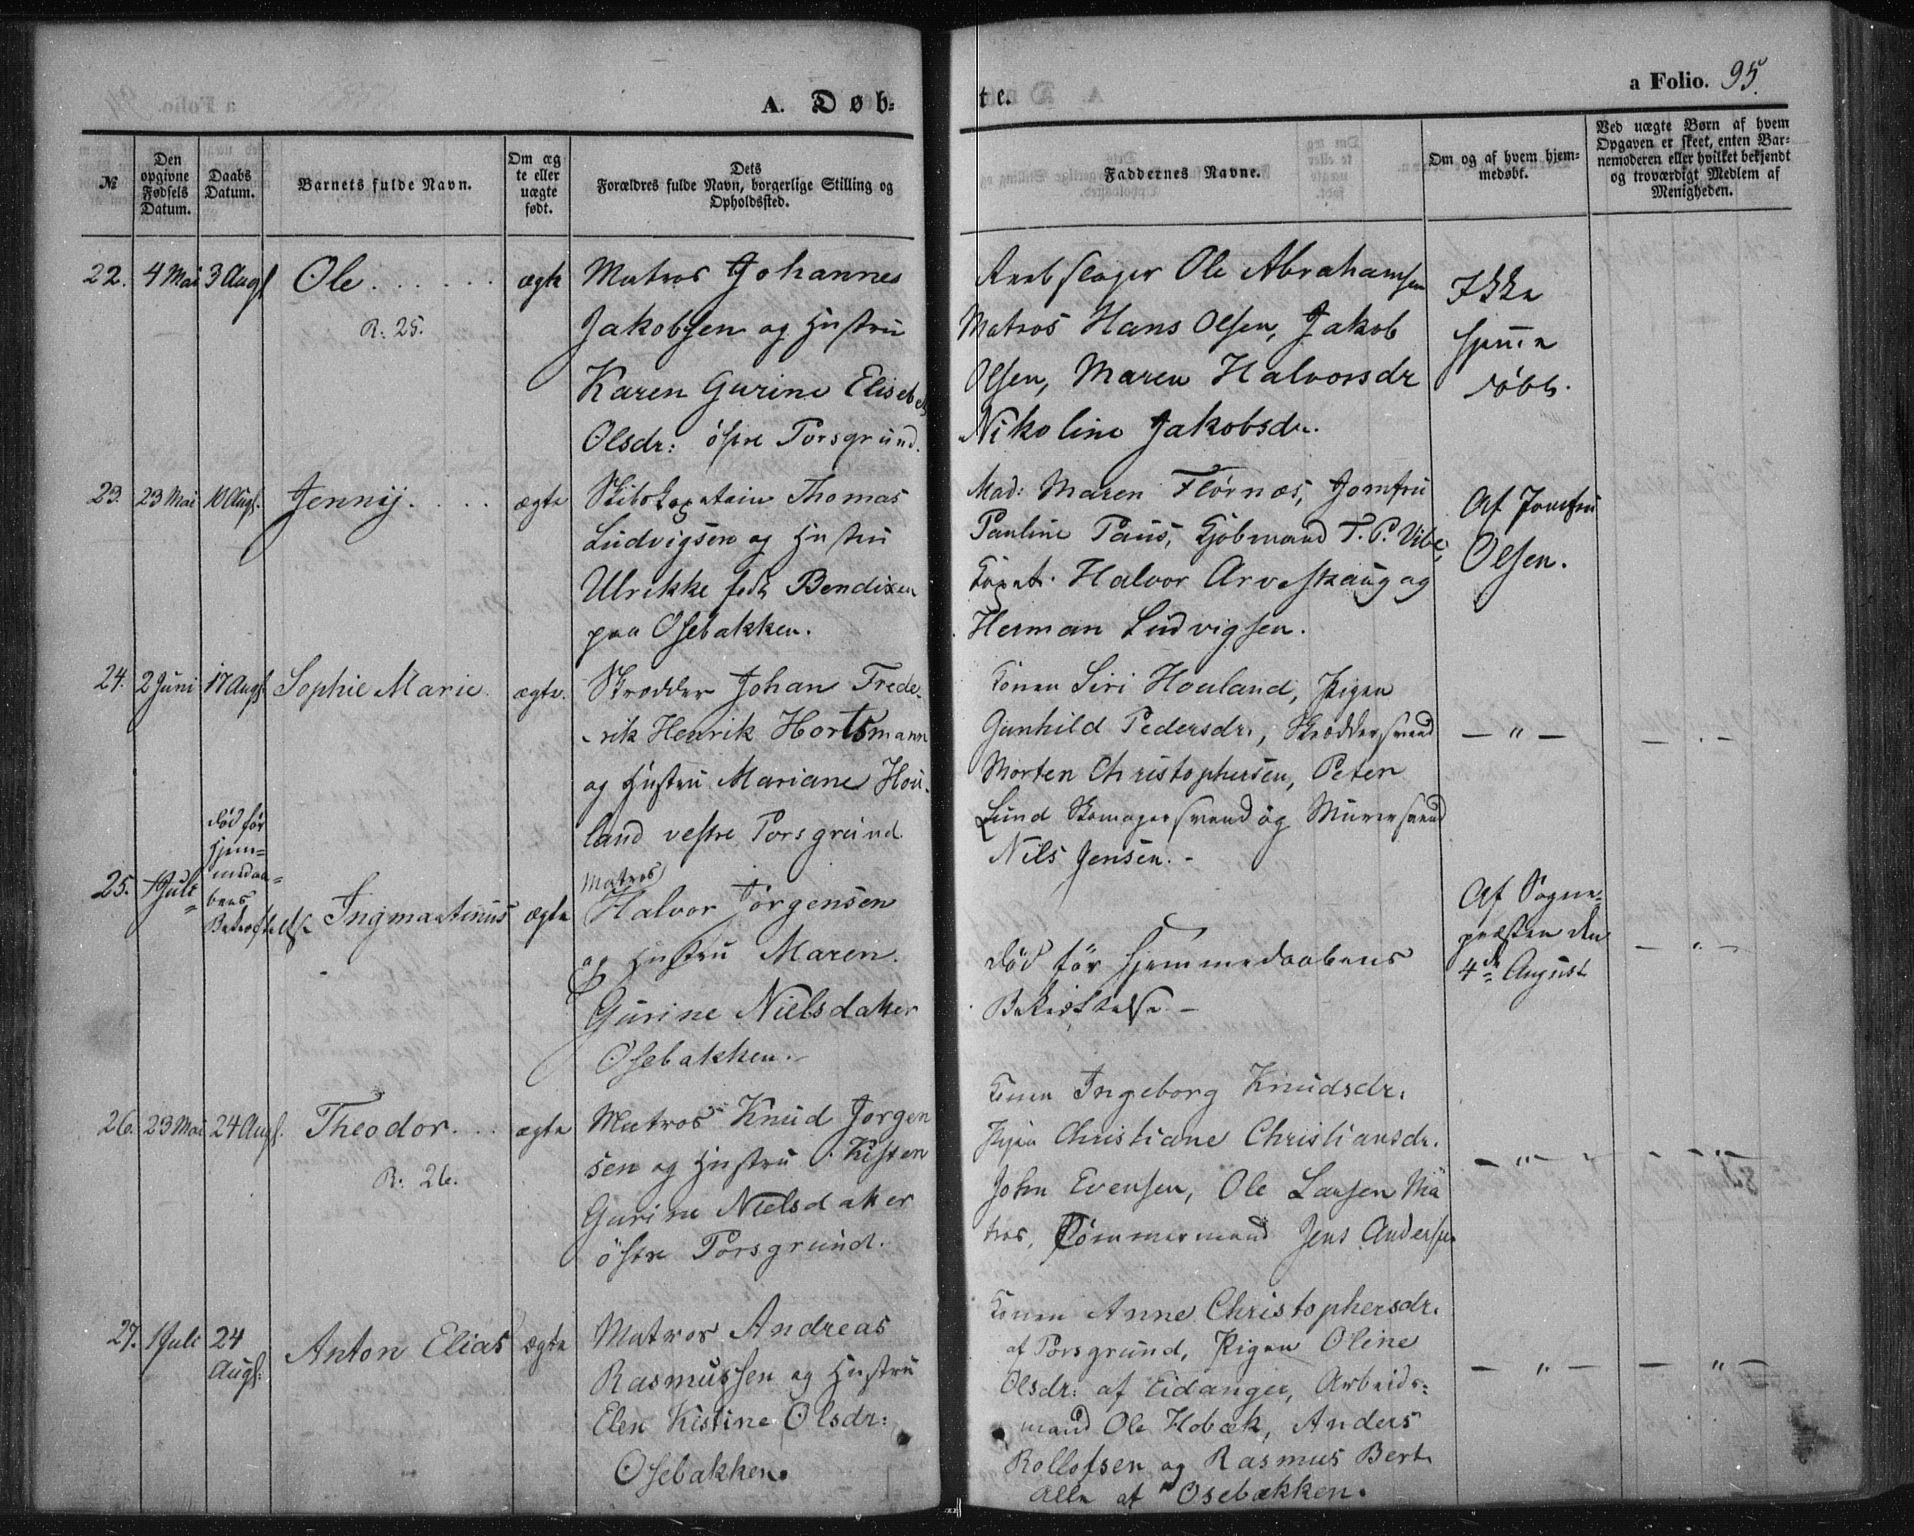 A. Døb-
te.
a Folio. 95.
№
Den opgivne Fødsels Datum.
Daabs Datum.
Barnets fulde Navn.
Om ægte eller uægte født.
Dets Forældres fulde Navn, borgerlige Stilling og Opholdssted.
Faddernes Navne.
Om og af hvem hjemmedøbt.
Ved uægte Børn af hvem Opgaven er skeet, enten Barnemoderen eller hvilket bekjendt og troværdigt Medlem af Menigheden.
22. 4 Mai 3 Augs Ole ægte
R: 25.
Matros Johannes
Jakobsen og Hustru
Karen Gurine Elisabeth
Olsdr: östre Porsgrund.
Ole Abrahamsen
Matros Hans Olsen, Jakob
Olsen, Maren Halvorsdr
Nikoline Jakobsdr.
Ikke
hjemme
døbt.
23. 23 Mai 10 Augs. Jennij ægte
Skibskapatain Thomas
Ludvigsen og Hustru
Ulrikke født Bendixen
paa Osebakken.
Mad: Maren Flörnæs, Jomfru
Pauline Paus, Kjöbmand T. P. Vibe,
Capt. Halvor Arveskaug og
Herman Ludvigsen.
Af Jomfru
Olsen.
24. 2 Juni 17 Augs Sophie Marie ægte.
Skrædder Johan Frede-
-rik Henrik Hortsmann
og Hustru Mariane Hou-
land vestre Porsgrund.
Konen Siri Houland, Pigen
Gunhild Pedersdr., Skræddersvend
Morten Christophersen, Peter
Lund Skomagersvend og Murersvend
Nils Jensen. -
— " —
— . —
25. 1 Juli
død før
Hjem-
medaa-
bens
Bekræftelse
Ingmartinus ægte
Matros
Halvor Jörgensen
og Hustru Maren
Gurine Nielsdaker
Osebakken.
död för Hjemmedaabens
Bekræftelse. -
Af Sogne-
præsten den
4de August
— " —
26. 23 Mai 24 Augs. Theodor ægte
R: 26.
Matros Knud Jörgen
sen og Hustru Kisten
Gurine Nielsdaker
östre Porsgrund.
Konen Ingeborg Knudsdr.
Pigen Christiane Christiansdr.
John Evensen, Ole Larsen Ma
tros, Tömmermand Jens Andersen
— " —
— " —
27. 1 Juli 24
Augs:
Anton Elias ægte
Matros Andreas
Rasmussen og Hustru
Elen Kistine Olsdr:
Osebakken.
Konen Anne Christophersdr.
af Porsgrund, Pigen Oline
Olsdr: af Eidanger, Arbeids-
mand Ole Hobæk, Anders
Rollofsen og Rasmus Bert.
alle af Osebækken.
— " —
— " —